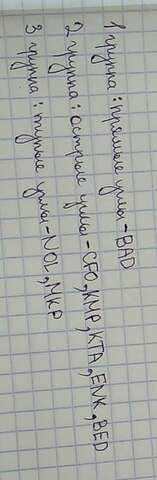 1 группа: прямые углы - BAD
2 группа: острые углы - CFO, KMP, KTA, ENK, BED
3 группа: тупые углы - NOL, MKP